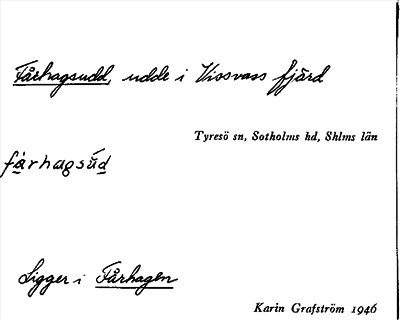 Fårhagsudd, udde i Vissvass fjärd
Tyresö sn, Sotholms hd, Shlms län
fårhagsúd
Ligger i Fårhagen
Karin Grafström 1946